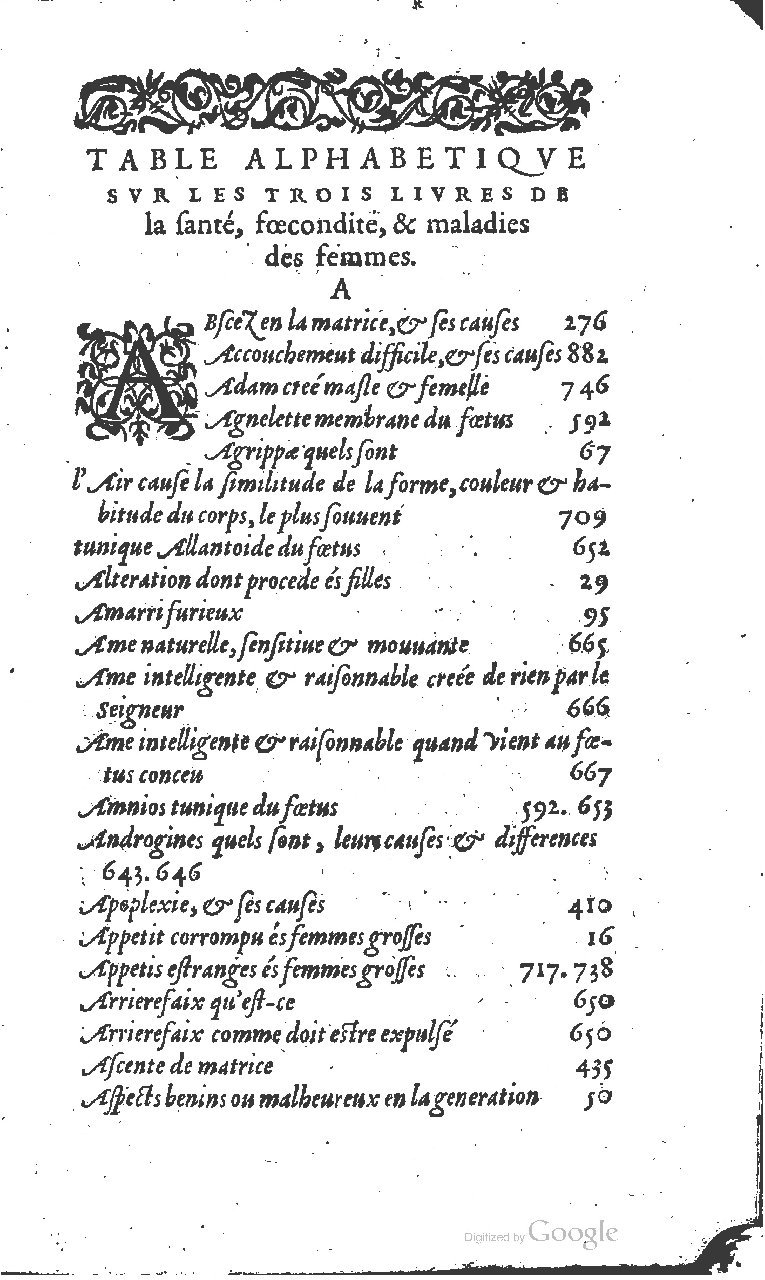 TABLE ALPHABETIQVE
SVR LES TROIS LIVRES DE
la ſanté, fœcondité, & maladies
des femmes.
A
ABſceZ en la matrice, & ſes cauſes 276
Accouchement difficile, & ſes cauſes 882
Adam creé maſle & femelle 746
Agnelette membrane du fœtus 592
Agrippæ quels ſont 67
l'Air cauſe la ſimilitude de la forme, couleur & ha-
bitude du corps, le plus ſouuent 709
tunique Allantoide du fœtus 652
Alteration dont procede és filles 29
Amarri furieux 95
Ame naturelle, ſenſitiue & mouuante 665
Ame intelligente & raiſonnable creée de rien par le
Seigneur 666
Ame intelligente & raiſonnable quand vient au fœ-
tus conceu 667
Amnios tunique du fœtus 592. 653
Androgines quels ſont, leurs cauſes & differences
643. 646
Apoplexie, & ſes cauſes 410
Appetit corrompu és femmes groſſes 16
Appetis eſtranges és femmes groſſes 717. 738
Arrierefaix qu'eſt-ce 650
Arrierefaix comme doit eſtre expulſé 650
Aſcente de matrice 435
Aſpects benins ou malheureux en la generation 50
Digitized by Google